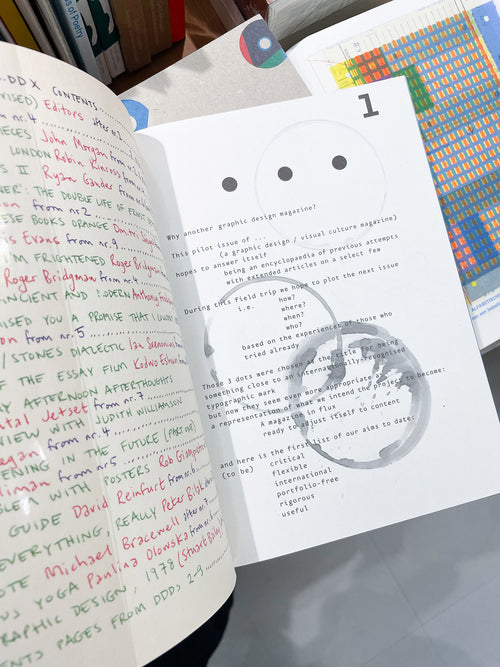 of Poetry
DDX CONTENTS
Editors after nr.2
from nr.4
John Morgan from
LONDON Robin Kinross from
II Ryan Gander from
THE DOUBLE LIFE OF ERNST
from nr2
THESE BOOKS ORANGE Dmitri
Evans from nr.9
I'M FRIGHTENED Roger Bridgman
Roger Bridgman from nr.4
ANCIENT AND MODERN Anthony
PROMISED YOU A PROMISE THAT I
from nr.5
/STONES DIALECTIC Ian Svenonius
OF THE ESSAY FILM Kodwo Eshun
AFTERNOON AFTERTHOUGHTS
Jetset from nr.7
VIEW WITH JUDITH WILLIAMSON
from nr.4
IN THE FUTURE (PART
from nr5
WITH POSTERS Rob Giampietro
GUIDE David Reinfurt from nr.6
EVERYTHING REALLY Peter
Michael Bracewell after nr.7
YOGA Paulina Olowska from nr.
GRAPHIC DESIGN, 1978 (Stuart Bailey)
PAGES FROM DDDs 2-9
1
Why another graphic design magazine?
This pilot issue of ...
(a graphic design / visual culture magazine)
hopes to answer itself
being an encyclopaedia of previous attempts
with extended articles on a select few
During this field trip we hope to plot the next issue
i.e. how?
where?
when?
who?
based on the experiences of those who
tried already
Those 3 dots were chosen as the title for being
something close to an internationally-recognised
typographic mark
but now they seem even more appropriate as
a representation of what we intend the project to become:
A magazine in flux
ready to adjust itself to content
and here is the first list of our aims to date:
(to be) critical
flexible
international
portfolio-free
rigorous
useful